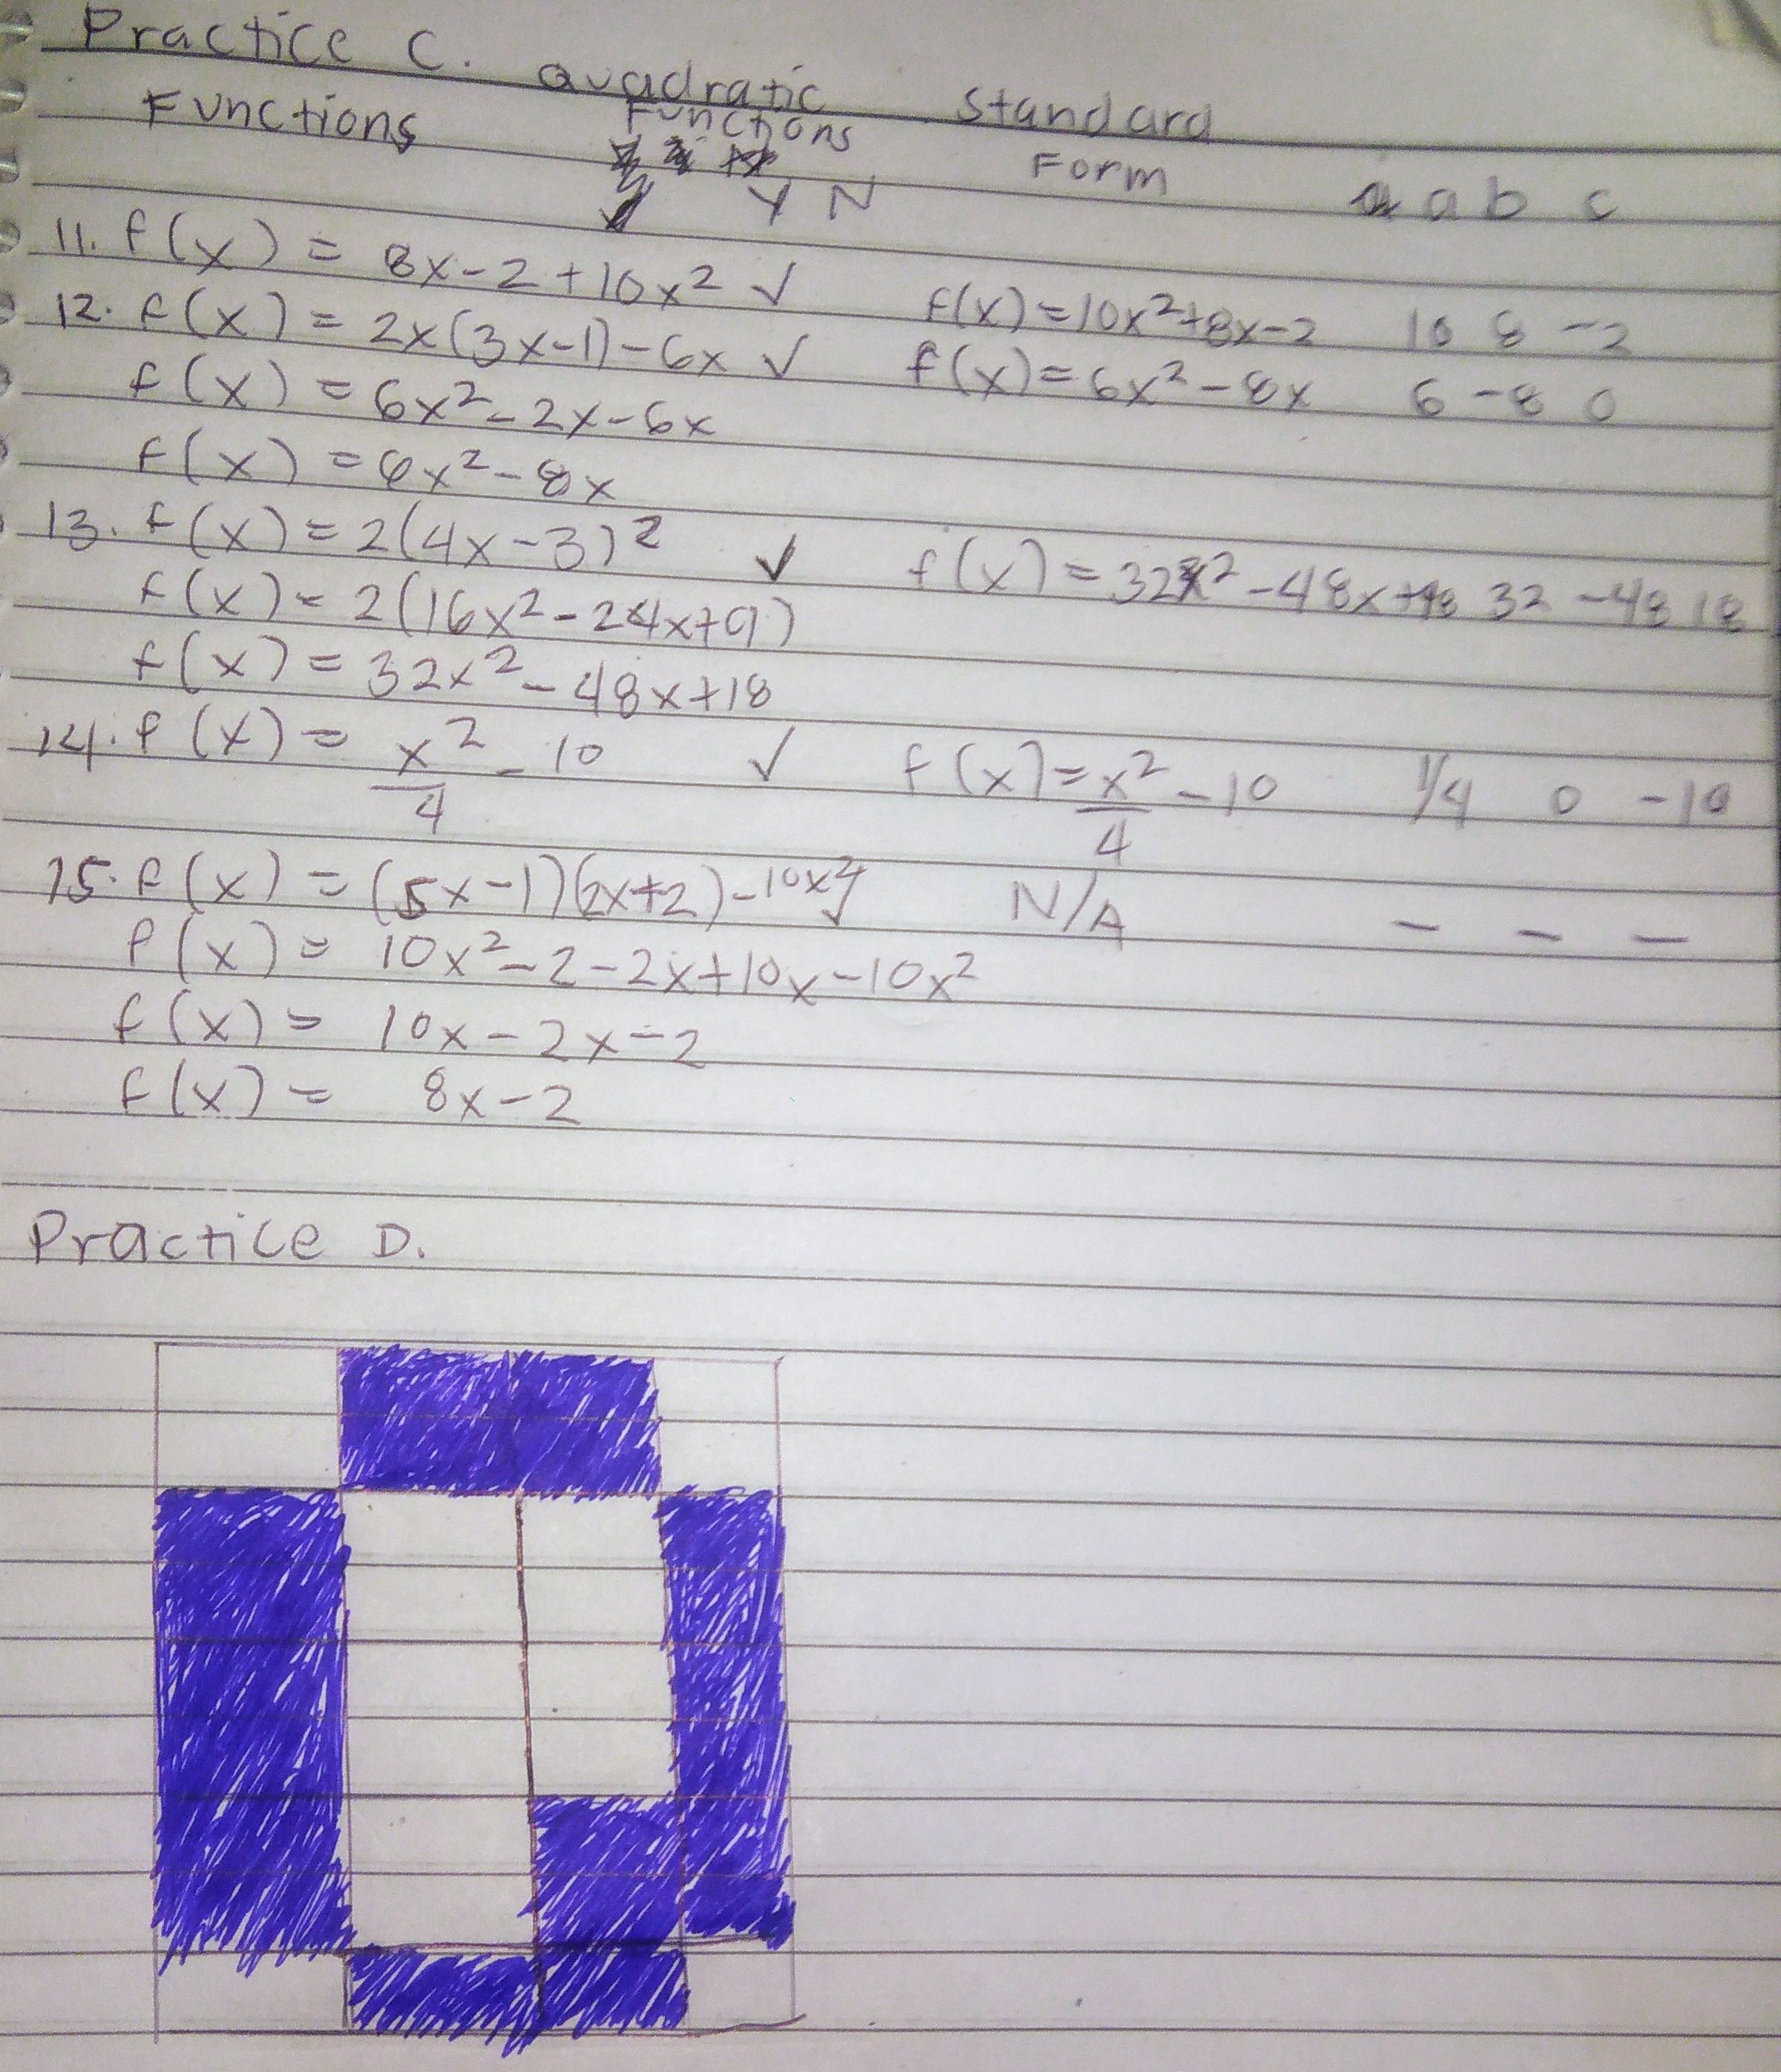 Practice C.
Functions quadratic Functions Standard Form
Y N a b c
11. f(x) = 8x-2+10x² ✓ f(x)=10x²+8x-2 10 8 -2
12. f(x) = 2x(3x-1)-6x ✓ f(x)=6x²-8x 6 -8 0
f(x) = 6x²-2x-6x
f(x) = 6x²-8x
13. f(x) = 2(4x-3)² ✓ f(x)=32x²-48x+18 32 -48 18
f(x) = 2(16x²-24x+9)
f(x) = 32x²-48x+18
14. f(x) = x²/4 - 10 ✓ f(x)= x²/4 - 10 1/4 0 -10
15. f(x) = (5x-1)(2x+2)-10x² ✓ N/A - - -
f(x) = 10x²-2-2x+10x-10x²
f(x) = 10x-2x-2
f(x) = 8x-2
Practice D.